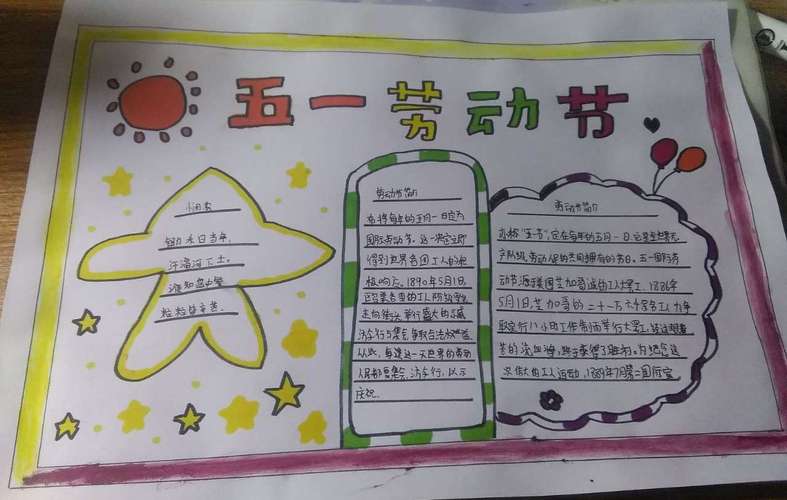 五一劳动节
悯农
锄禾日当午,
汗滴禾下土。
谁知盘中餐
粒粒皆辛苦。
劳动节简介
布将每年的五月一日定为
国际劳动节。这一决定立即
得到世界各国工人的积
极响应。1890年5月1日,
欧美各国的工人阶级率先
走向街头,举行盛大的示威
游行与集会,争取合法权益.
从此,每逢这一天世界的劳动
人民都要集会、游行,以示
庆祝.
劳动节简介
亦称"五一节",定在每年的五月一日.它是全世界无
产阶级、劳动人民的共同拥有的节日。五一国际劳
动节源于美国芝加哥城的工人大罢工.1886年
5月1日,芝加哥的二十一万六千余名工人为争
取实行八小时工作制而举行大罢工,经过艰
苦的流血斗争,终于获得了胜利.为纪念这
次伟大的工人运动,1889年7月第二国际宣